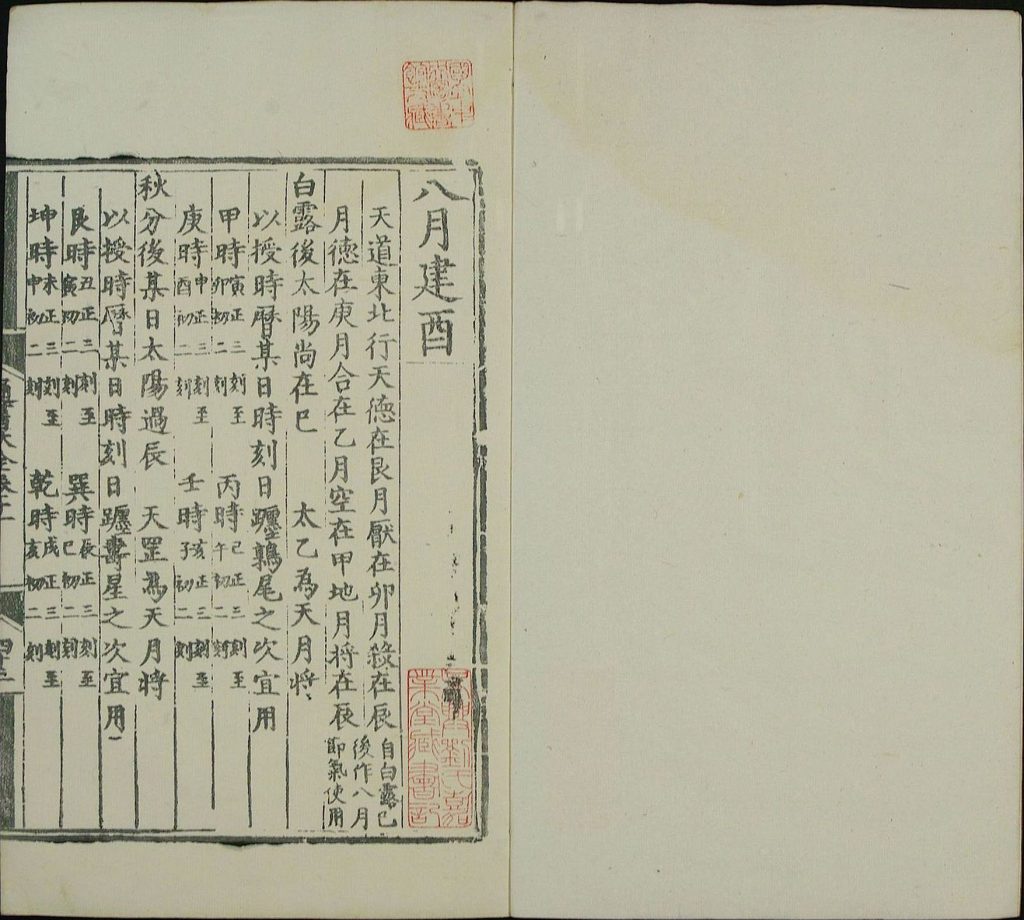 八月建酉
天道東北行天德在艮月厭在卯月綠在辰
月德在庚月合在乙月空在甲地月將在辰
自白露已
後作八月
節氣使用
白露後太陽尚在巳　太乙為天月將
以授時曆某日時刻日躔鶉尾之次宜用
甲時寅正三刻至
卯初二刻
丙時巳正三刻至
午初二刻
庚時申正三刻至
酉初二刻
壬時亥正三刻至
子初二刻
秋分後某日太陽過辰　天罡為天月將
以授時曆某日時刻日躔壽星之次宜用
艮時丑正三刻至
寅初二刻
巽時辰正三刻至
巳初二刻
坤時未正三刻至
申初二刻
乾時戌正三刻至
亥初二刻
大全
四十三
吳興劉氏嘉
業堂藏書記